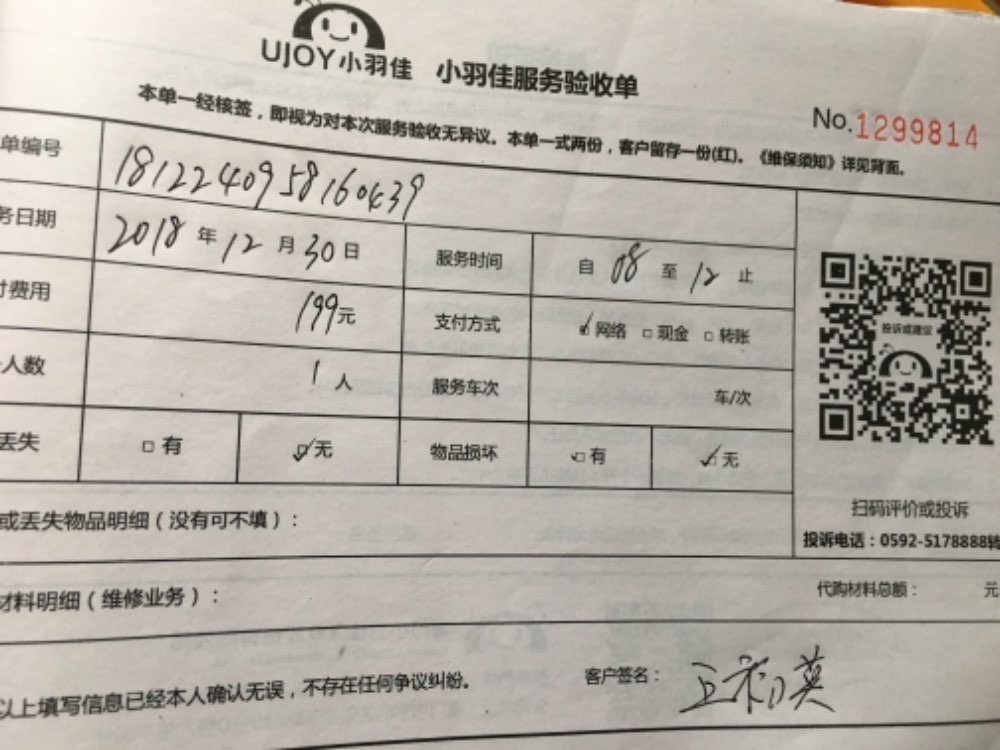 UJOY小羽佳 小羽佳服务验收单
No.1299814
本单一经核签，即视为对本次服务验收无异议。本单一式两份，客户留存一份(红)。《维保须知》详见背面。
单编号 1812240958160439
务日期 2018年12月30日 服务时间 自08至12止
付费用 199元 支付方式 网络 现金 转账
人数 1人 服务车次 车/次
丢失 有 无 物品损坏 有 无
投诉或建议
扫码评价或投诉
投诉电话：0592-5178888转
或丢失物品明细（没有可不填）：
材料明细（维修业务）： 代购材料总额： 元
以上填写信息已经本人确认无误，不存在任何争议纠纷。 客户签名：